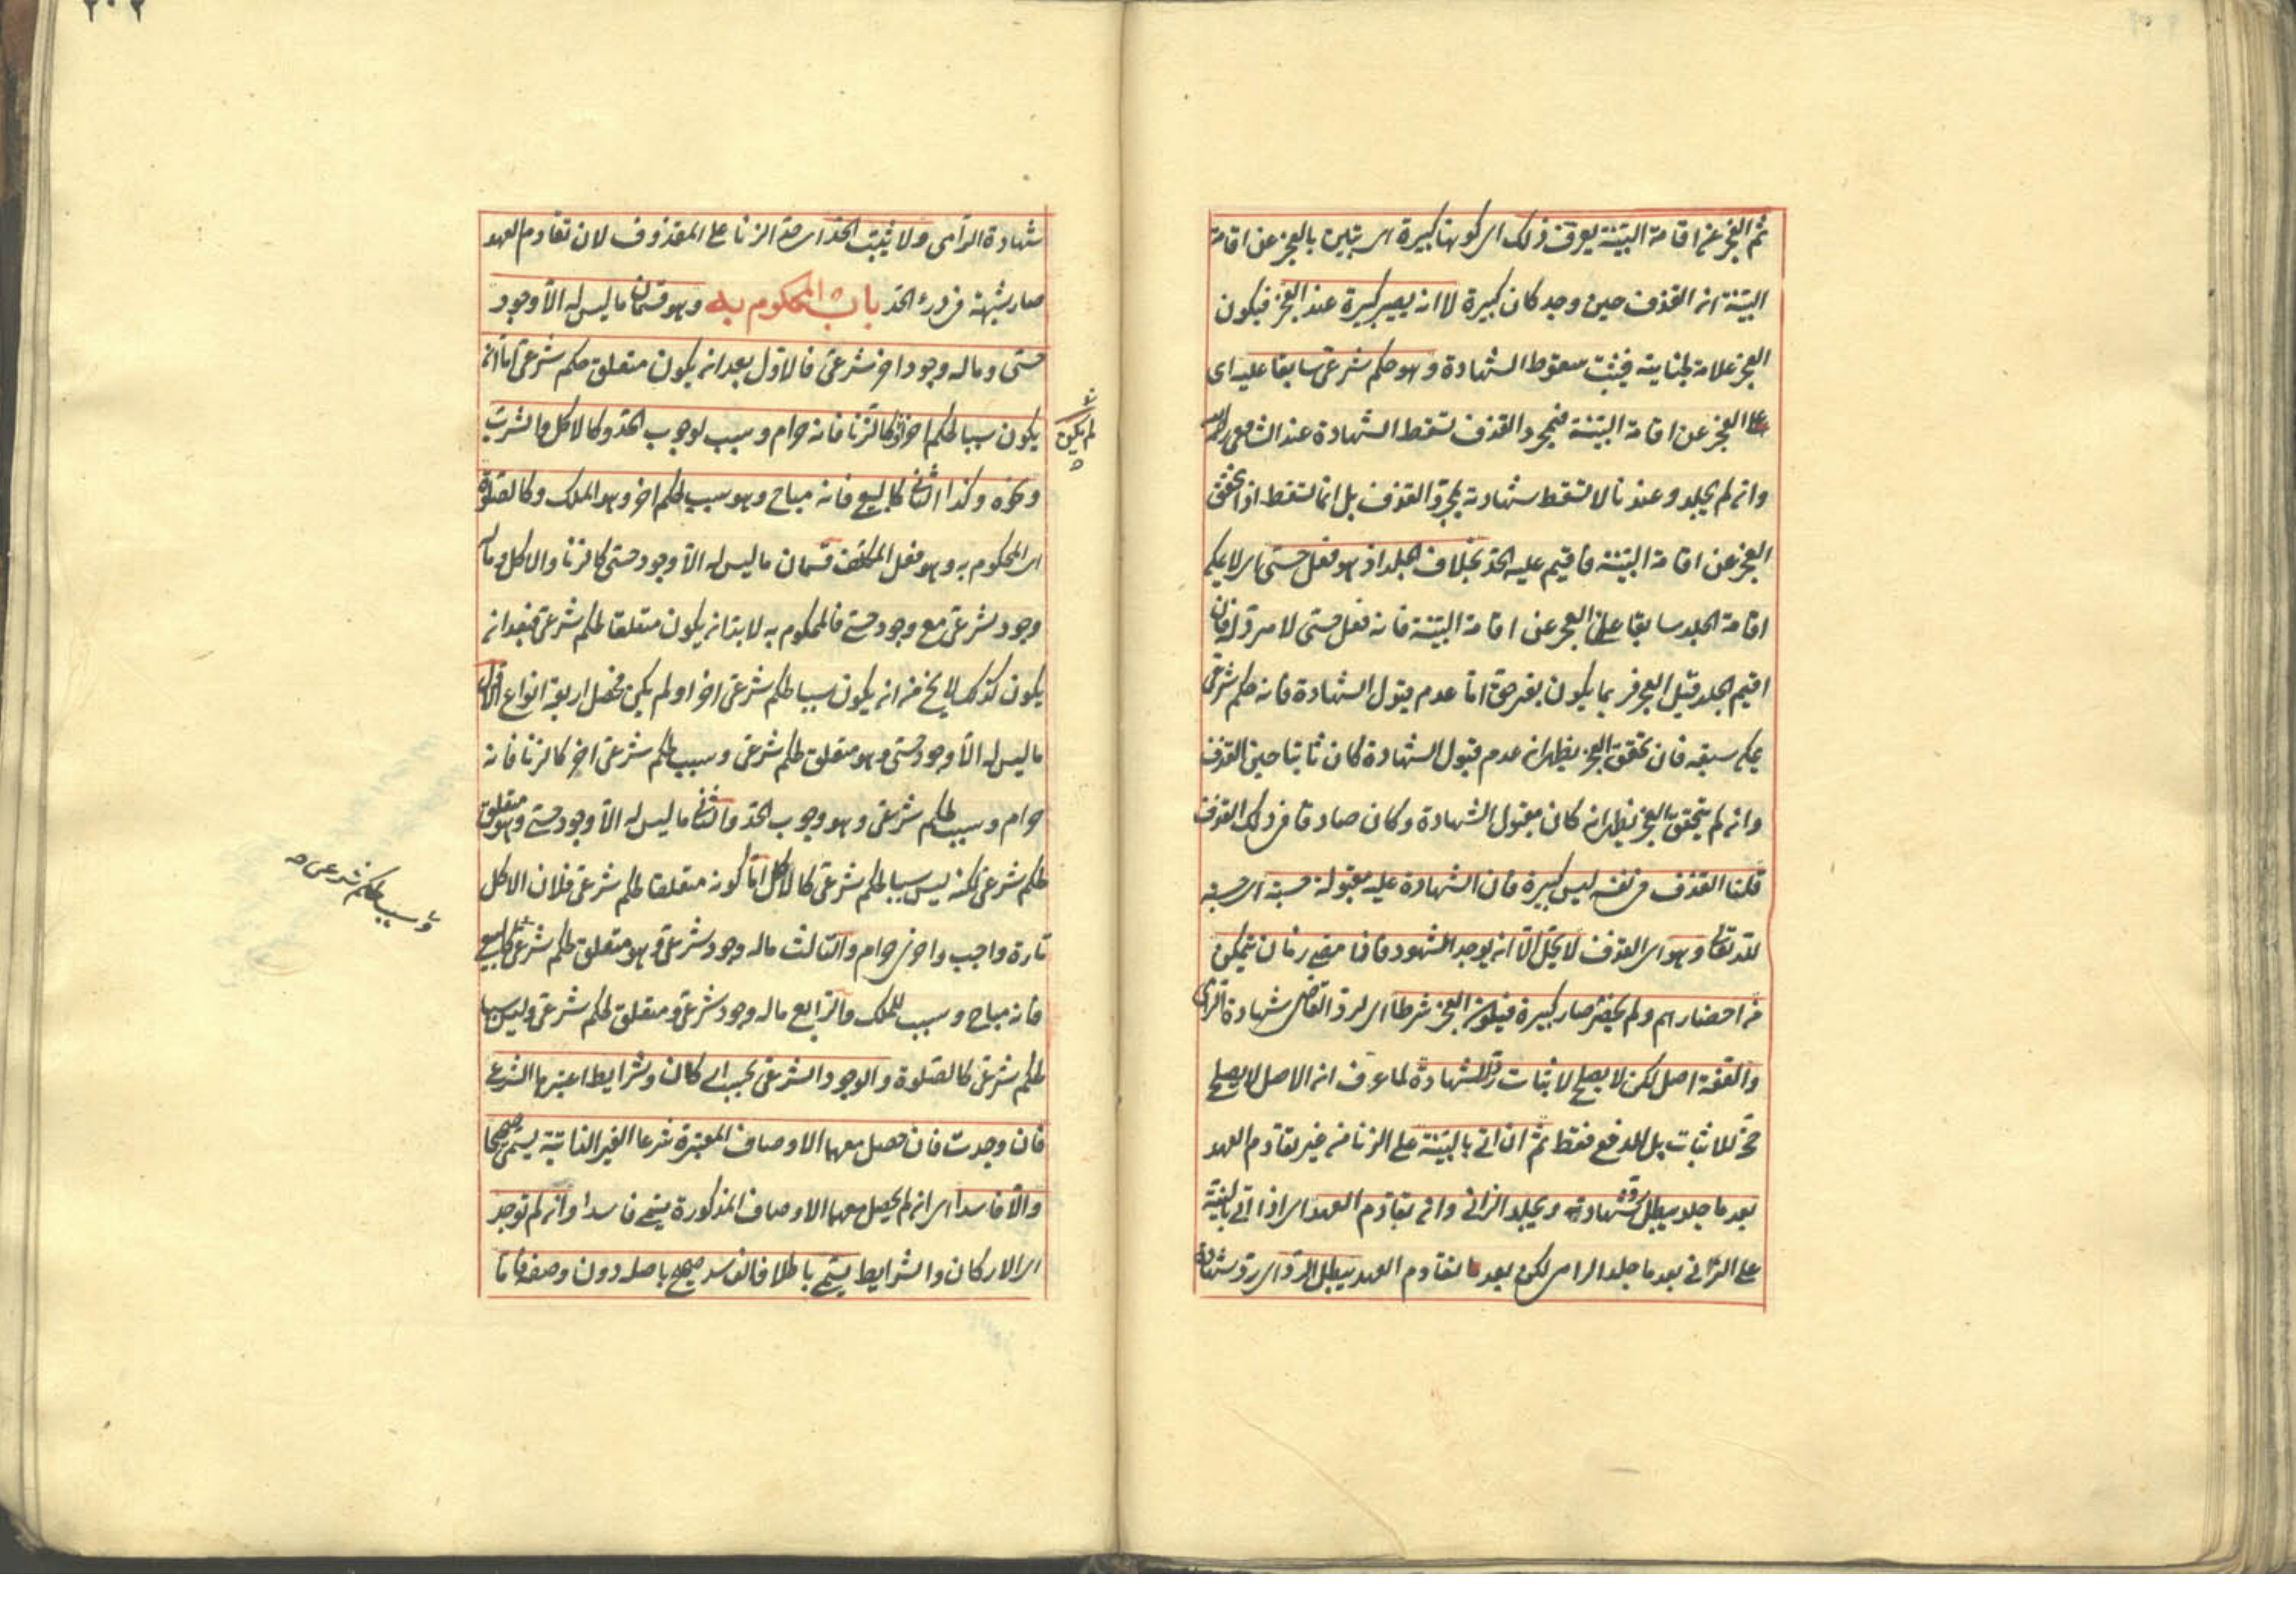 ثم العجز عن اقامة البينة يعرف ذلك اى كونها كبيرة اى يتبين بالعجز عن اقامة
البينة ان القذف حين وجد كان كبيرة لا انه يصير كبيرة عند العجز فيكون
العجز علامة لجنايته فيثبت سقوط الشهادة وهو حكم شرعى سابقا عليه اى
على العجز عن اقامة البينة فبمجرد القذف تسقط الشهادة عند الشافعى رحمه الله
وان لم يجلد وعندنا لا تسقط شهادته بمجرد القذف بل انما تسقط اذا تحقق
العجز عن اقامة البينة فاقيم عليه الحد بخلاف الجلد اذ هو فعل حسى اى لا يمكن
اقامة الجلد سابقا على العجز عن اقامة البينة فانه فعل حسى لا مرد له فان
اقيم الجلد قبل العجز فربما يكون بغير حق اما عدم قبول الشهادة فانه حكم شرعى
يمكن سبقه فان تحقق العجز يظهر ان عدم قبول الشهادة كان ثابتا حين القذف
وان لم يتحقق العجز يظهر انه كان مقبول الشهادة وكان صادقا فى ذلك القذف
قلنا القذف فى نفسه ليس كبيرة فان الشهادة عليه مقبولة حسبة اى حسبة
لله تعالى وهو اى القذف لا يحل الا ان يوجد الشهود فاذا مضى زمان يتمكن
من احضارهم ولم يحضر صار كبيرة فيكون العجز شرطا اى لرد القاضى شهادة الرامى
والعفة اصل لكن لا يصلح لاثبات رد الشهادة لما عرف ان الاصل لا يصلح
حجة للاثبات بل للدفع فقط ثم ان اتى بالبينة على الزنا من غير تقادم العهد
بعد ما جلد يبطل رد شهادته ويجلد الزانى وان تقادم العهد اى اذا اتى بالبينة
على الزانى بعد ما جلد الرامى لكن بعد تقادم العهد يبطل الرد اى رد شهادة
شهادة الرامى ولا يثبت الحد اى حد الزنا على المقذوف لان تقادم العهد
صار شبهة فى درء الحد باب المحكوم به وهو قسمان ما ليس له الا وجود
حسى وما له وجود اخر شرعى فالاول بعد ان يكون متعلق حكم شرعى اما ان
يكون سببا لحكم اخر كالزنا فانه حرام وسبب لوجوب الحد وكالاكل والشرب
لم يكن
ونحوه وكذا الثانى كالبيع فانه مباح وهو سبب لحكم اخر وهو الملك وكالصلوة
اى المحكوم به وهو فعل المكلف قسمان ما ليس له الا وجود حسى كالزنا والاكل وما له
وجود شرعى مع وجود حسى فالمحكوم به لا بد ان يكون متعلقا لحكم شرعى فبعد ان
يكون كذلك لا يخ من ان يكون سببا لحكم شرعى اخر او لم يكن فحصل اربعة انواع الاول
ما ليس له الا وجود حسى وهو متعلق لحكم شرعى وسبب لحكم شرعى اخر كالزنا فانه
حرام وسبب لحكم شرعى وهو وجوب الحد والثانى ما ليس له الا وجود حسى وهو متعلق
لحكم شرعى لكنه ليس سببا لحكم شرعى كالاكل اما كونه متعلقا لحكم شرعى فلان الاكل
تارة واجب واخرى حرام والثالث ما له وجود شرعى وهو متعلق لحكم شرعى كالبيع
وسبب لحكم شرعى صح
فانه مباح وسبب للملك والرابع ما له وجود شرعى ومتعلق لحكم شرعى وليس سببا
لحكم شرعى كالصلوة والوجود الشرعى بحسب اركان وشرايط اعتبرها الشرع
فان وجدت فان حصل معها الاوصاف المعتبرة شرعا الغير الذاتية يسمى صحيحا
والا فاسدا اى ان لم يحصل معها الاوصاف المذكورة يسمى فاسدا وان لم توجد
اى الاركان والشرايط يسمى باطلا فالفاسد صحيح باصله دون وصفه فاما